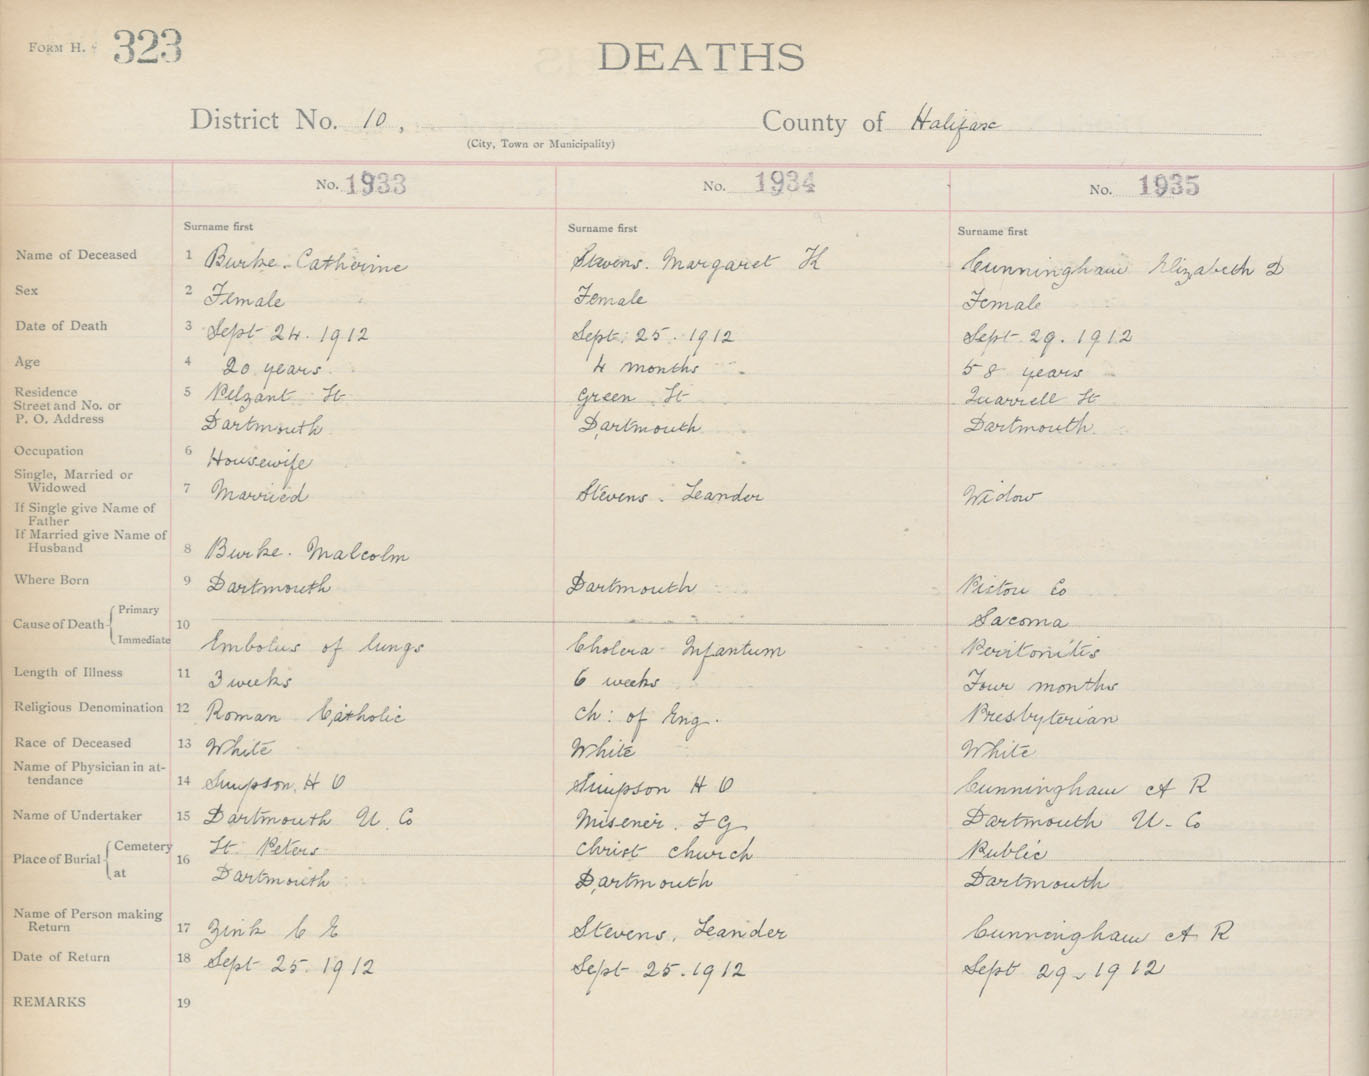 FORM H. 323
DEATHS
District No. 10, County of Halifax
(City, Town or Municipality)
No. 1933 No. 1934 No. 1935
Surname first Surname first Surname first
Name of Deceased 1 Burke. Catherine Stevens. Margaret H Cunningham Elizabeth D
Sex 2 Female Female Female
Date of Death 3 Sept 24. 1912 Sept. 25. 1912 Sept 29. 1912
Age 4 20 years 4 months 58 years
Residence 5 Pelzant St Green St Quarrell St
Street and No. or
P. O. Address Dartmouth Dartmouth Dartmouth
Occupation 6 Housewife
Single, Married or
Widowed 7 Married Stevens. Leander Widow
If Single give Name of
Father
If Married give Name of
Husband 8 Burke. Malcolm
Where Born 9 Dartmouth Dartmouth Pictou Co
Cause of Death Primary 10 Sacoma
Immediate Embolus of lungs Cholera Infantum Peritonitis
Length of Illness 11 3 weeks 6 weeks Four months
Religious Denomination 12 Roman Catholic Ch: of Eng. Presbyterian
Race of Deceased 13 White White White
Name of Physician in at-
tendance 14 Simpson. H O Simpson H O Cunningham A R
Name of Undertaker 15 Dartmouth U. Co Misener. F G Dartmouth U. Co
Place of Burial Cemetery 16 St. Peters Christ Church Public
at Dartmouth Dartmouth Dartmouth
Name of Person making
Return 17 Zink C E Stevens, Leander Cunningham A R
Date of Return 18 Sept 25. 1912 Sept 25. 1912 Sept 29. 1912
REMARKS 19